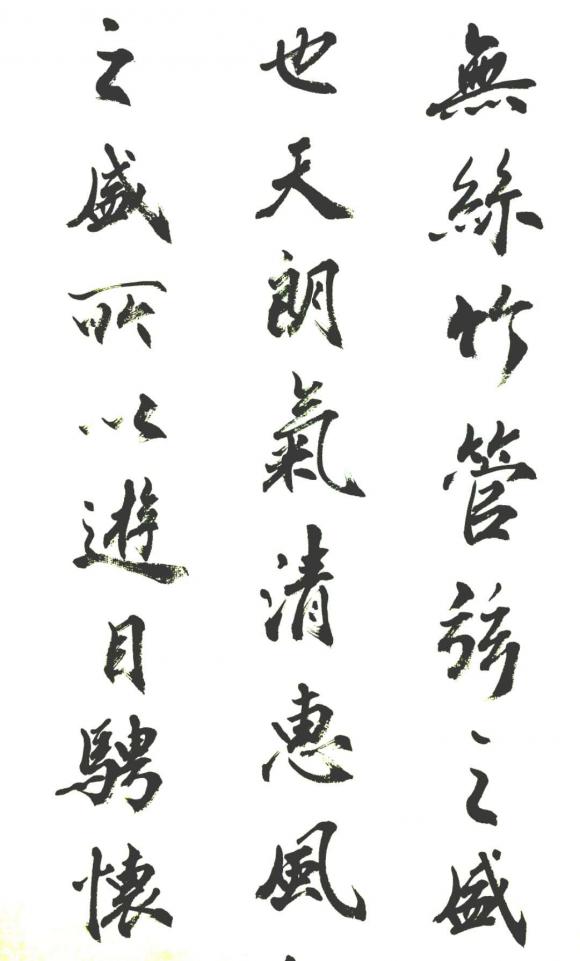 無絲竹管弦之盛
也天朗氣清惠風
之盛所以遊目騁懷